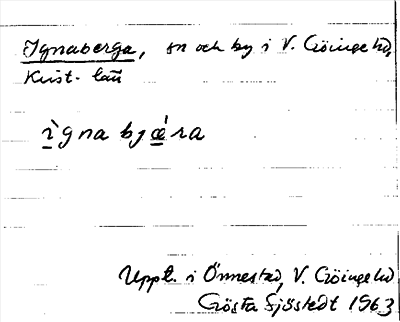 Ignaberga, sn och by i V. Göinge hd,
Krist. län
ìgna bjǽra
Uppt. i Önnestad, V. Göinge hd
Gösta Sjöstedt 1963